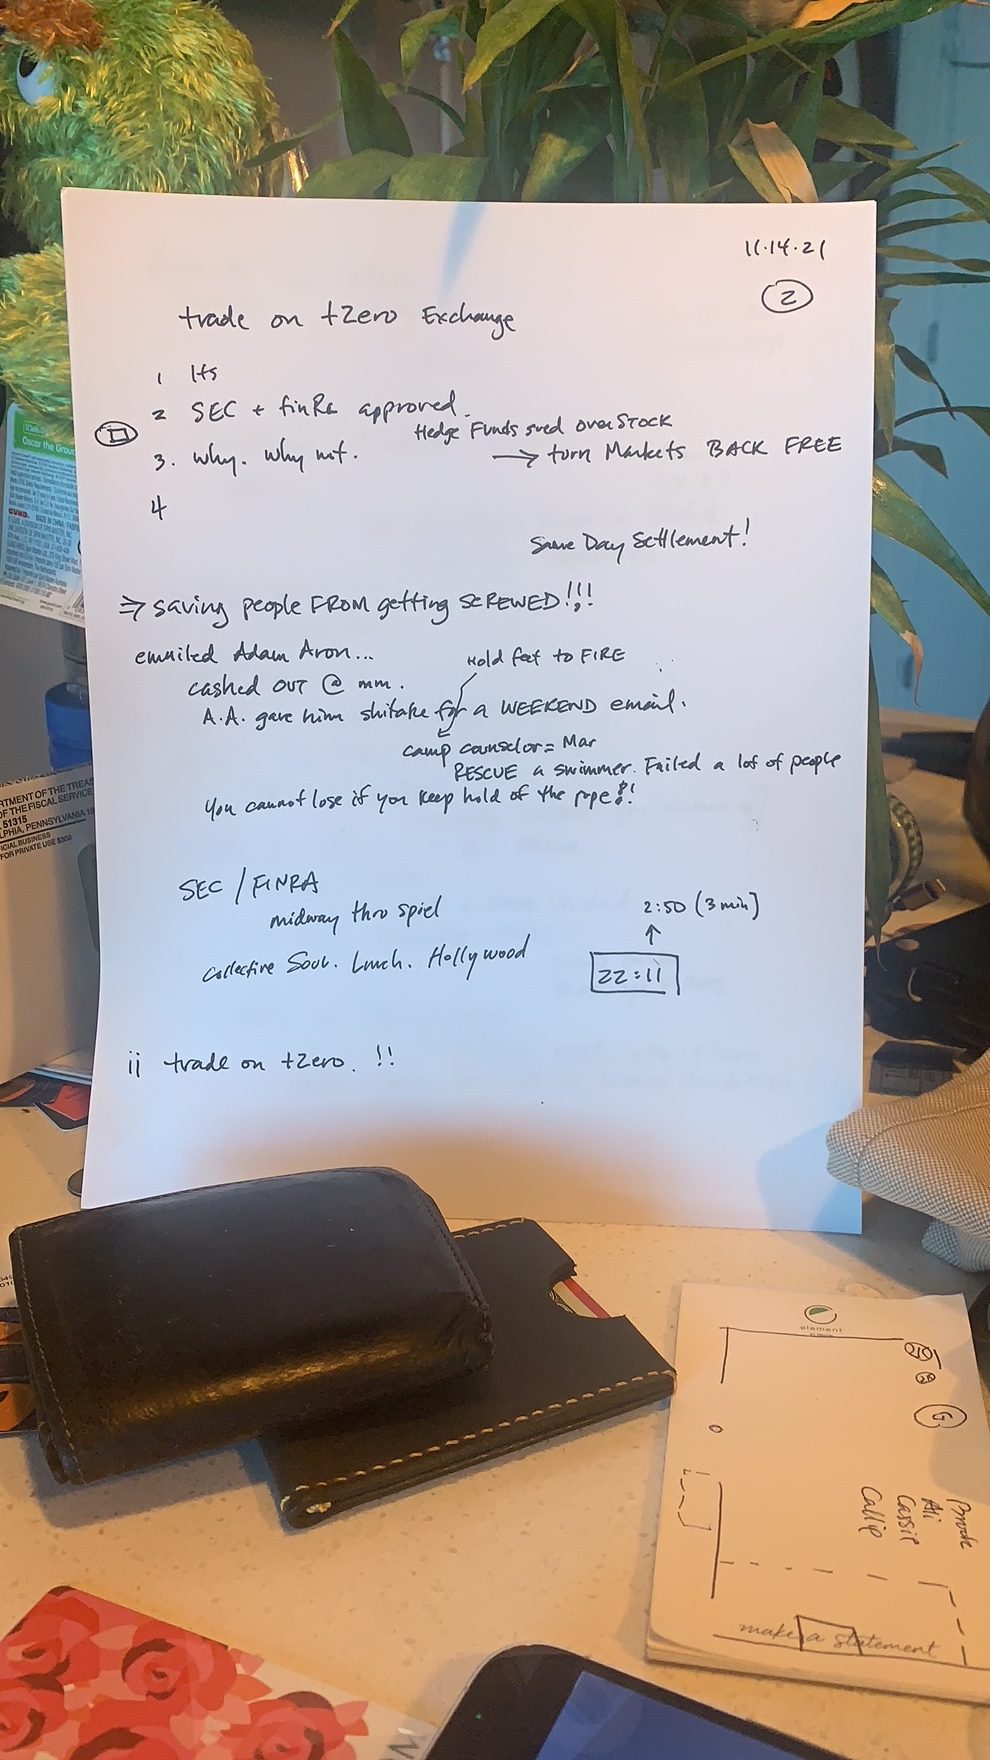 11.14.21
2
trade on tZero Exchange
1 Its
2 SEC + finRa approved.
Hedge Funds sued overSTOCK
3. why. why not. → turn Markets BACK FREE
4
Same Day Settlement!
⇒ saving people FROM getting SCREWED!!!
emailed Adam Aron...
Hold feet to FIRE
cashed OUT @ mm.
A.A. gave him shitake for a WEEKEND email.
camp counselor = Mar
RESCUE a swimmer. Failed a lot of people
you cannot lose if you keep hold of the rope!!
SEC / FINRA
midway thro spiel
2:50 (3 min)
Collective Soul. Lunch. Hollywood
22:11
ii trade on tZero. !!
Oscar the Grou
GUND.
MADE IN CHINA
RTMENT OF THE TREAS
OF THE FISCAL SERVICE
51315
LPHIA, PENNSYLVANIA 19
ICIAL BUSINESS
FOR PRIVATE USE $300
element
G
Ali
Cassie
Callie
make a statement